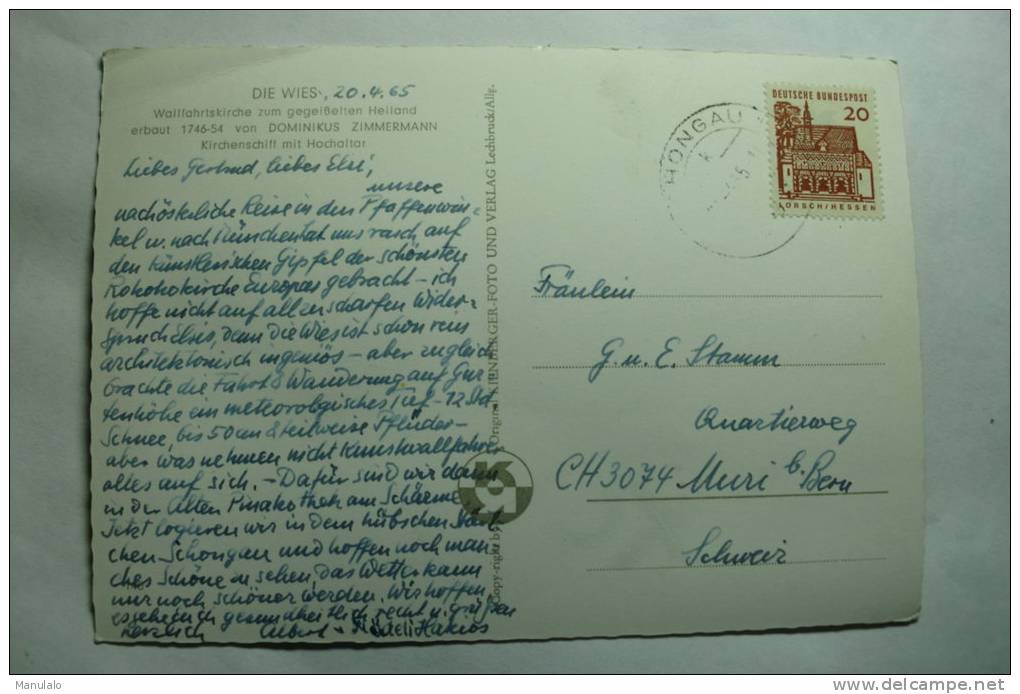 DIE WIES, 20.4.65
Wallfahrtskirche zum gegeißelten Heiland
erbaut 1746-54 von DOMINIKUS ZIMMERMANN
Kirchenschiff mit Hochaltar
Liebes Gertrud, liebes
unsere
nachösterliche Reise in den Pfaffenwin-
kel u. nach München hat uns rasch auf
den künstlerischen Gipfel der schönsten
Rokokokirche Europas gebracht – ich
hoffe nicht auf allzu scharfen Wider-
spruch Elsis, denn die Wies ist schon rein
architektonisch ingeniös – aber zugleich
brachte die Fahrt & Wanderung auf Gur-
tenhöhe ein meteorologisches Tief – 12 Std
Schnee, bis 50 cm & teilweise Pflüder –
aber was nehmen nicht Kunstwallfahrer
alles auf sich. – Dafür sind wir dann
in der Alten Pinakothek am Schärme.
Jetzt logieren wir in dem hübschen Städt-
chen Schongau und hoffen noch man-
ches Schöne zu sehen, das Wetter kann
nur noch schöner werden. Wir hoffen
es gehe euch gesundheitlich recht u. grüßen
herzlich Albert +
Copy-right by Original KIENBERGER-FOTO UND VERLAG Lechbruck/Allg.
K
HONGAU
DEUTSCHE BUNDESPOST
20
LORSCH/HESSEN
Fräulein
G. u. E. Stamm
Quartierweg
CH 3074 Muri b. Bern
Schweiz
Manulalo
delcampe.net